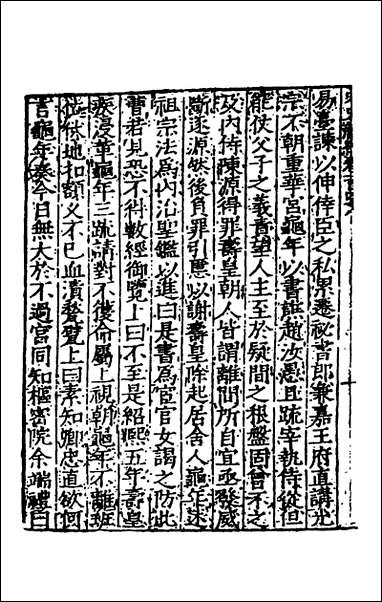 易臺諫以伸倖臣之私累遷祕書郎兼嘉王府直講光
宗不朝重華宮龜年以書譙趙汝愚且疏宰執侍從但
能仗父子之義責望人主至於疑間之根盤固曾不之
及内侍陳源得罪壽皇朝人皆謂離間所自宜亟發威
斷逐源然後負罪引慝以謝壽皇除起居舍人龜年述
祖宗法爲内治聖鑑以進曰是書爲宦官女謁之防此
曹若見恐不得數經御覽上曰不至是紹熙五年壽皇
疾浸革龜年三疏請對不獲命屬上視朝龜年不離班
位伏地扣額久不已血漬甃甓上曰素知卿忠直欲何
言龜年奏今日無大於不過宮同知樞密院余端禮曰